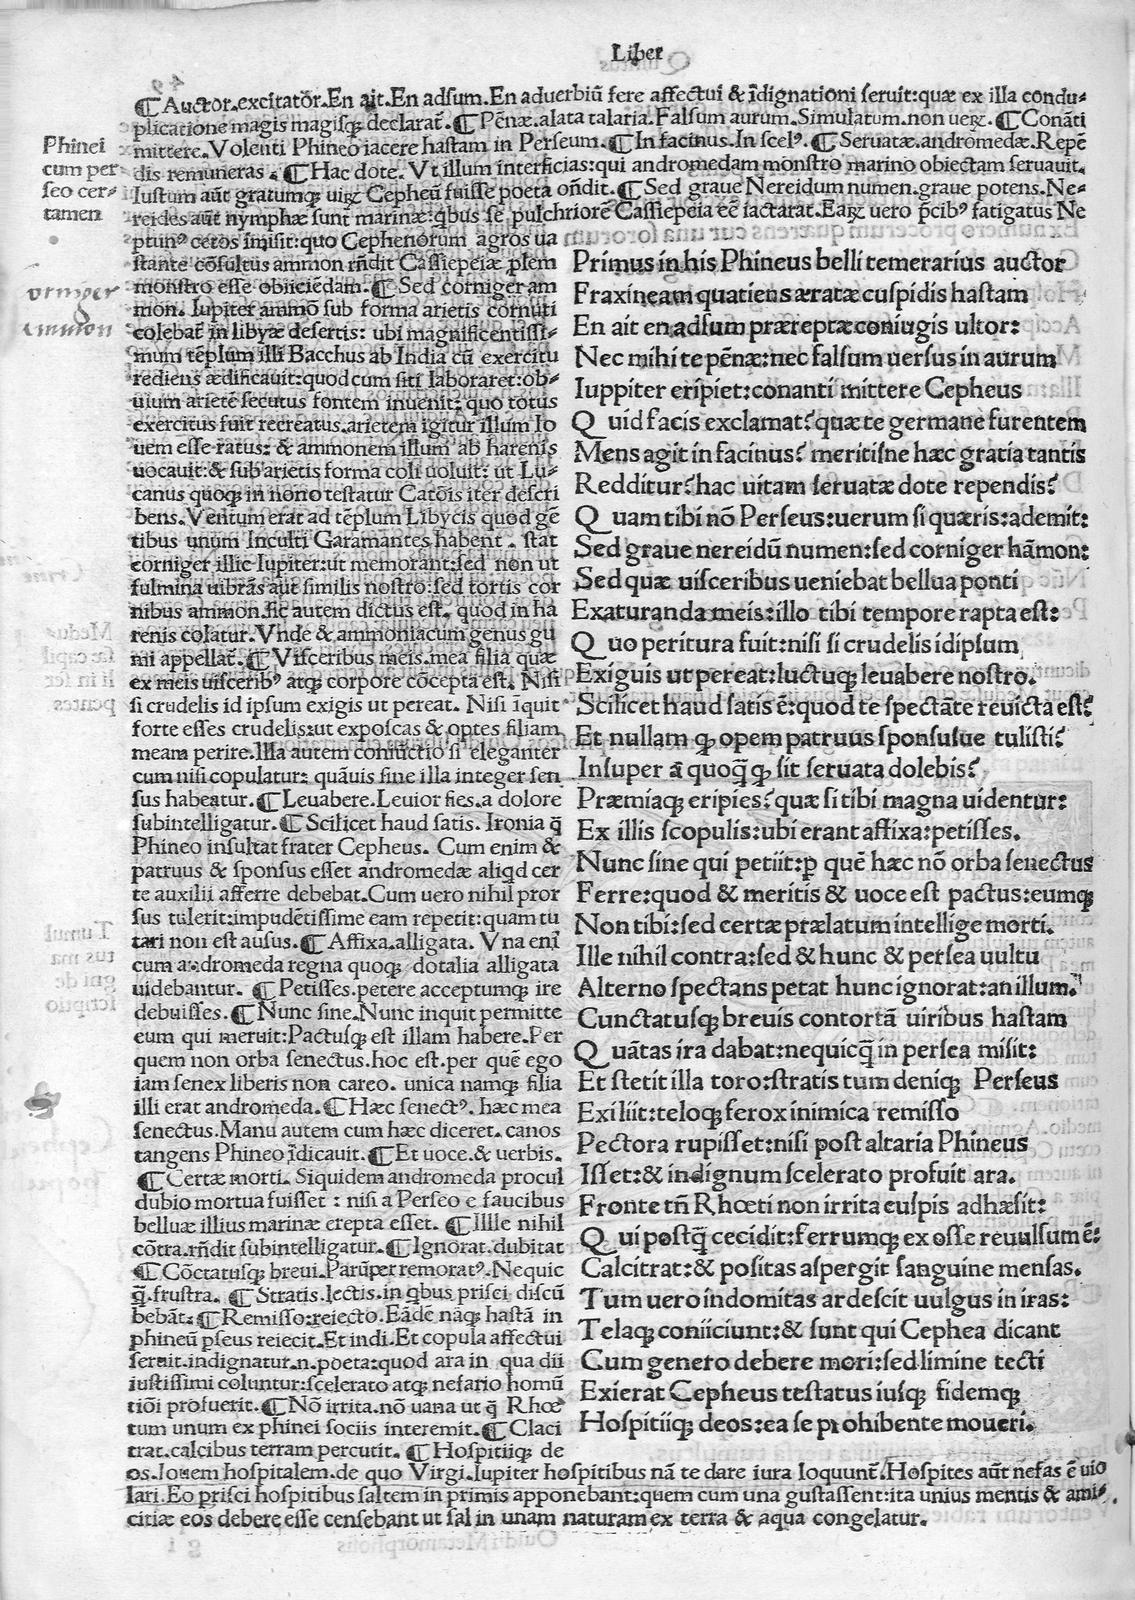 Liber
¶Auctor.excitator̄.En ait.En adsum.En aduerbiū fere affectui & īdignationi seruit:quæ ex illa condu⸗
plicatione magis magisqꝫ declarat̄.¶Pēnæ.alata talaria.Falsum aurum.Simulatum.non ueꝝ.¶Conāti
mittere.Volenti Phineo iacere hastam in Perseum.¶In facinus.In scelꝰ.¶Seruatæ.andromedæ.Repē
dis remuneras.¶Hac dote.Vt illum interficias:qui andromedam monstro marino obiectam seruauit.
Iustum aūt gratumqꝫ uiꝝ Cepheū fuisse poeta oñdit.¶Sed graue Nereidum numen.graue potens.Ne⸗
reides aūt nymphæ sunt marinæ:qbus se pulchriorē Cassiepeia eē iactarat.Eaꝝ uero p̄cibꝰ fatigatus Ne
Phinei
cum per
seo cer⸗
tamen
ptunꝰ cetos īmisit:quo Cephenorum agros ua
stante cōsultus ammon rñdit Cassiepeiæ plem
monstro esse obiiciedam.¶Sed corniger am
mon. Iupiter ammō sub forma arietis cornuti
colebat̄ in libyæ desertis: ubi magnificentissi⸗
mum tēplum illi Bacchus ab India cū exercitu
rediens ædificauit:quod cum siti laboraret:ob⸗
uium arietē secutus fontem inuenit: quo totus
exercitus fuit recreatus.arietem igitur illum Io
uem esse ratus: & ammonem illum ab harenis
uocauit:& sub arietis forma coli uoluit: ut Lu⸗
canus quoqꝫ in nono testatur Catōis iter descri
bens.Ventum erat ad tēplum Libycis quod gē
tibus unum Inculti Garamantes habent. stat
corniger illic Iupiter:ut memorant:sed non ut
fulmina uibrās aut similis nostro:sed tortis cor
nibus ammon.sic autem dictus est. quod in ha
renis colatur.Vnde & ammoniacum genus gu
mi appellat̄.¶Visceribus meis.mea filia quæ
ex meis uisceribꝰ atqꝫ corpore cōcepta est. Nisi
si crudelis id ipsum exigis ut pereat. Nisi īquit
forte esses crudelis:ut exposcas & optes filiam
meam perire.Illa autem coniūctio si eleganter
cum nisi copulatur: quāuis sine illa integer sen
sus habeatur.¶Leuabere.Leuior fies.a dolore
subintelligatur.¶Scilicet haud satis. Ironia q̄
Phineo insultat frater Cepheus. Cum enim &
patruus & sponsus esset andromedæ aliqd cer
te auxilii afferre debebat.Cum uero nihil pror
sus tulerit:impudētissime eam repetit:quam tu
tari non est ausus.¶Affixa.alligata. Vna enī
cum andromeda regna quoqꝫ dotalia alligata
uidebantur. ¶Petisses.petere acceptumqꝫ ire
debuisses.¶Nunc sine.Nunc inquit permitte
eum qui meruit:Pactusqꝫ est illam habere.Per
quem non orba senectus.hoc est.per quē ego
iam senex liberis non careo. unica namqꝫ filia
illi erat andromeda.¶Hæc senectꝰ. hæc mea
senectus.Manu autem cum hæc diceret. canos
tangens Phineo īdicauit.¶Et uoce.& uerbis.
¶Certæ morti. Siquidem andromeda procul
dubio mortua fuisset : nisi a Perseo e faucibus
belluæ illius marinæ erepta esset. ¶Ille nihil
cōtra.rñdit subintelligatur.¶Ignorat.dubitat
¶Cōctatusqꝫ breui.Parūper remoratꝰ.Nequic
q̄.frustra. ¶Stratis.lectis.in qbus prisci discū
bebāt.¶Remisso:reiecto.Eādē nāqꝫ hastā in
phineū pseus reiecit.Et indi.Et copula affectui
seruit.indignatur.n.poeta:quod ara in qua dii
iustissimi coluntur:scelerato atqꝫ nefario homū
tiōi profuerit.¶Nō irrita.nō uana ut q̄ Rhœ
tum unum ex phinei sociis interemit.¶Claci
trat.calcibus terram percutit. ¶Hospitiiqꝫ de
Primus in his Phineus belli temerarius auctor
Fraxineam quatiens æratæ cuspidis hastam
En ait en adsum præreptæ coniugis ultor:
Nec mihi te pēnæ:nec falsum uersus in aurum
Iuppiter eripiet:conanti mittere Cepheus
Quid facis exclamat?quæ te germane furentem
Mens agit in facinus? meritisne hæc gratia tantis
Redditur?hac uitam seruatæ dote rependis?
Quam tibi nō Perseus:uerum si quæris:ademit:
Sed graue nereidū numen:sed corniger hāmon:
Sed quæ uisceribus ueniebat bellua ponti
Exaturanda meis:illo tibi tempore rapta est:
Quo peritura fuit:nisi si crudelis idipsum
Exigis ut pereat:luctuqꝫ leuabere nostro.
Scilicet haud satis ē:quod te spectāte reuicta est?
Et nullam qꝫ opem patruus sponsusue tulisti?
Insuper ā quoq̄ qꝫ sit seruata dolebis?
Præmiaqꝫ eripies?quæ si tibi magna uidentur:
Ex illis scopulis:ubi erant affixa:petisses.
Nunc sine qui petiit:ꝑ quē hæc nō orba senectus
Ferre:quod & meritis & uoce est pactus:eumqꝫ
Non tibi:sed certæ prælatum intellige morti.
Ille nihil contra:sed & hunc & persea uultu
Alterno spectans petat hunc ignorat:an illum.
Cunctatusqꝫ breuis contortā uiribus hastam
Quātas ira dabat:nequicq̄ in persea misit:
Et stetit illa toro:stratis tum deniqꝫ Perseus
Exiliit:teloqꝫ ferox inimica remisso
Pectora rupisset:nisi post altaria Phineus
Isset:& indignum scelerato profuit ara.
Fronte tñ Rhœti non irrita cuspis adhæsit:
Qui postq̄ cecidit:ferrumqꝫ ex osse reuulsum ē:
Calcitrat:& positas aspergit sanguine mensas.
Tum uero indomitas ardescit uulgus in iras:
Telaqꝫ coniiciunt:& sunt qui Cephea dicant
Cum genero debere mori:sed limine tecti
Exierat Cepheus testatus iusqꝫ fidemqꝫ
Hospitiiqꝫ deos:ea se prohibente moueri.
os.Iouem hospitalem.de quo Virgi.Iupiter hospitibus nā te dare iura loquunt̄.Hospites aūt nefas ē uio
lari.Eo prisci hospitibus saltem in primis apponebant:quem cum una gustassent:ita unius mentis & ami⸗
citiæ eos debere esse censebant ut sal in unam naturam ex terra & aqua congelatur.